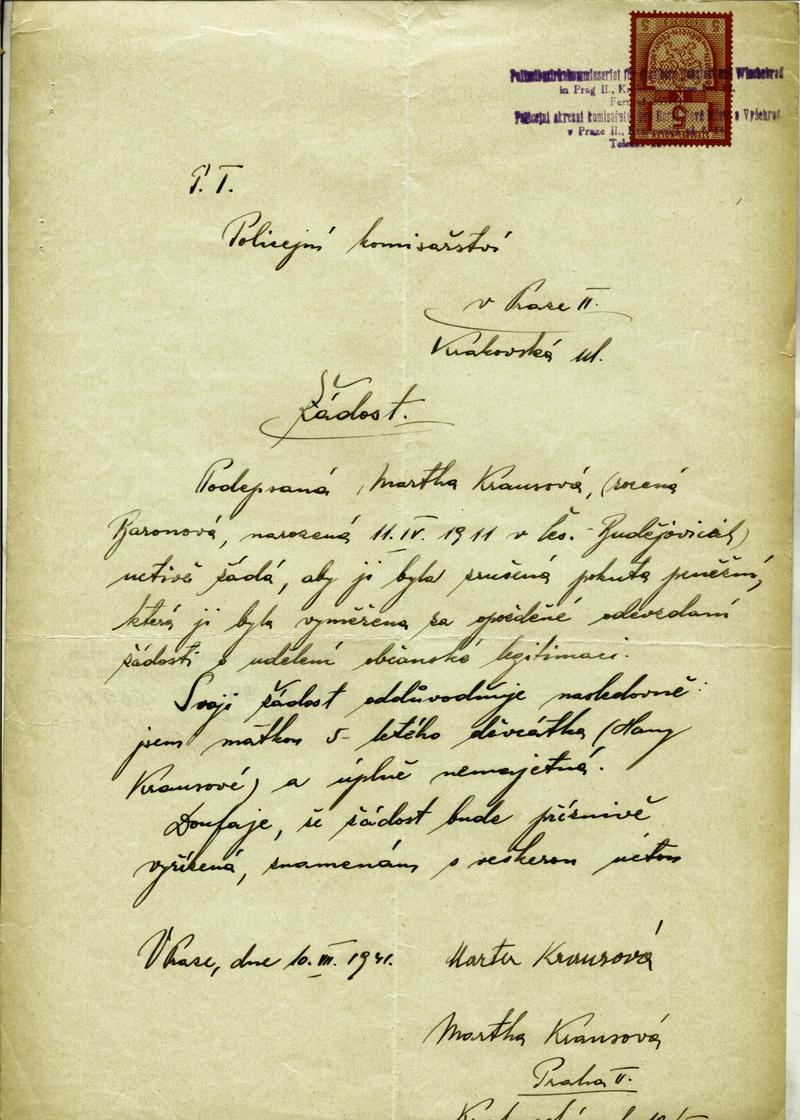 Polizeibezirkskommissariat für Wischehrad
in Prag II.,
Policejní okresní komisařství Vyšehrad
v Praze II.,
5
K
P. T.
Policejní komisařství
v Praze II.
Krakovská ul.
Žádost.
Podepsaná Martha Krausová, (rozená
Baronová, narozená 11. IV. 1911 v Čes. Budějovicích)
uctivě žádá, aby ji byla zrušená pokuta peněžní,
která ji byla vyměřena za opožděné odevzdaní
žádosti o udělení občanské legitimaci.
Svoji žádost oddůvodňuje nasledovně:
jsem matkou 5-letého děvčátka (Hany
Krausové) a úplně nemajetná.
Doufaje, že žádost bude příznivě
vyřízená, znamenám s veškerou úctou
V Praze, dne 10. III. 1941.
Marta Krausová
Martha Krausová
Praha II.